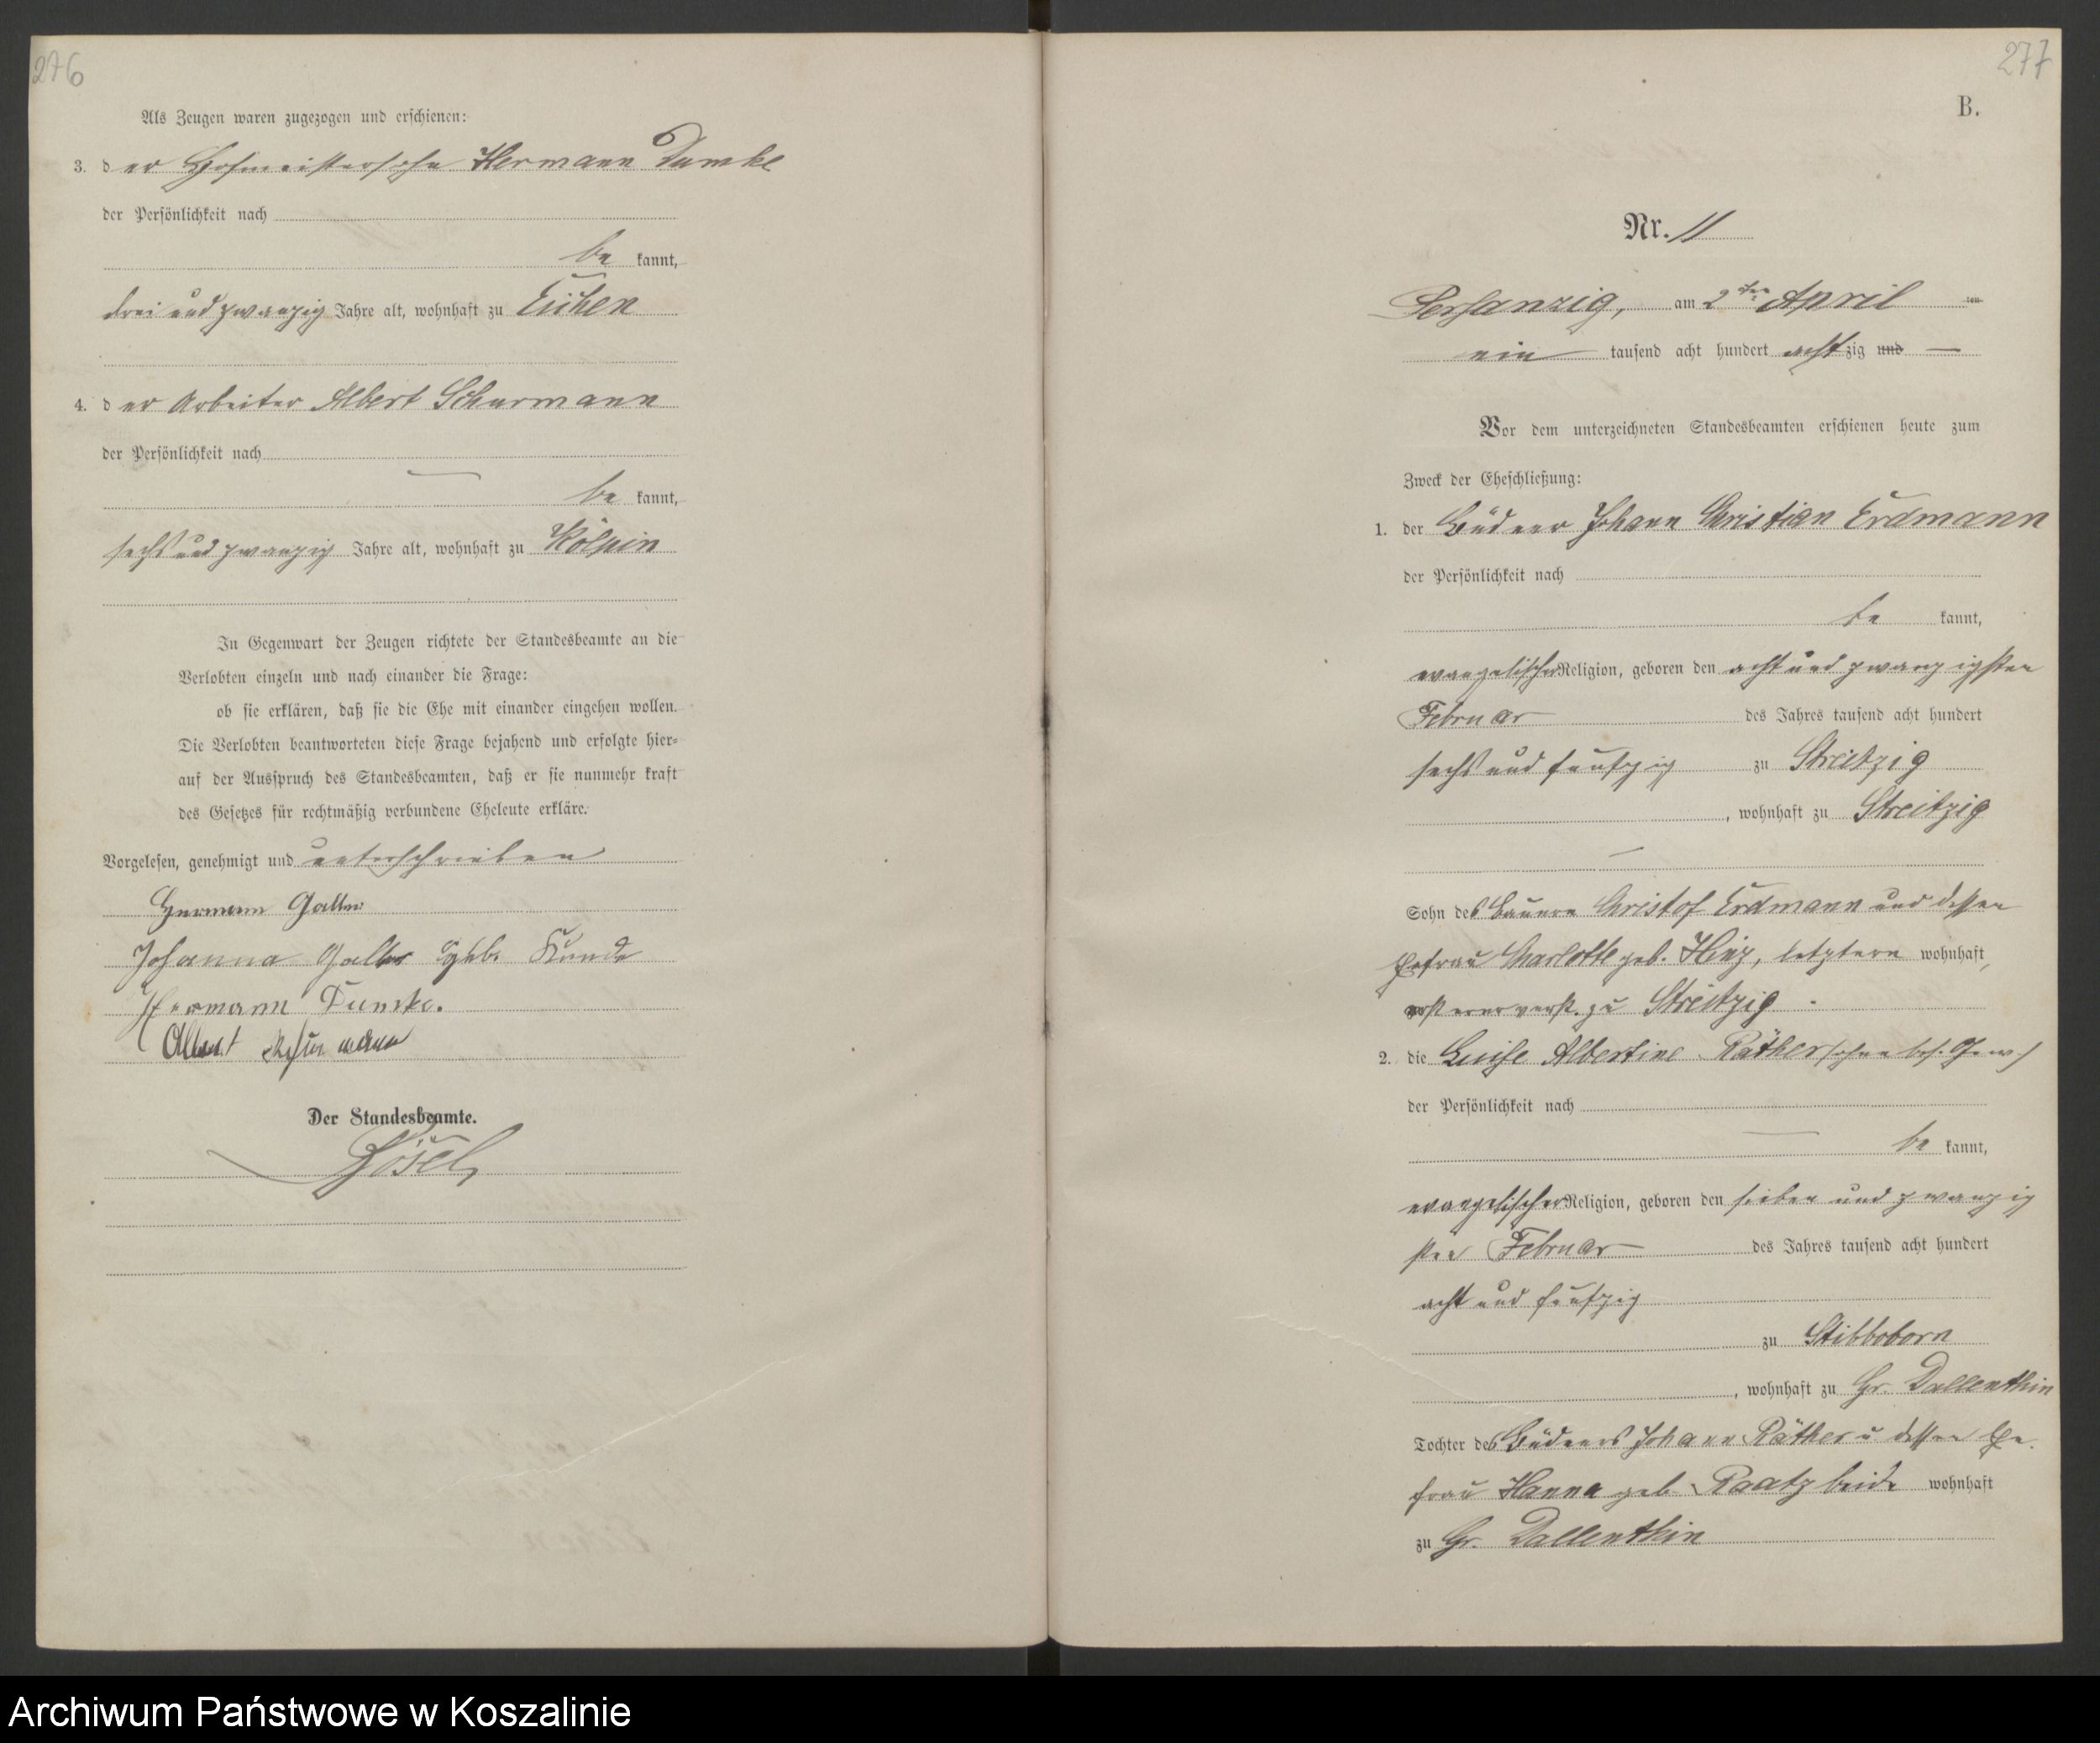 276
Als Zeugen waren zugezogen und erschienen:
3. der Hofmeistersohn Hermann Dumke
der Persönlichkeit nach
be kannt,
drei und zwanzig Jahre alt, wohnhaft zu Eichen
4. der Arbeiter Albert Schurmann
der Persönlichkeit nach
be kannt,
sechs und zwanzig Jahre alt, wohnhaft zu Kölpin
In Gegenwart der Zeugen richtete der Standesbeamte an die
Verlobten einzeln und nach einander die Frage:
ob sie erklären, daß sie die Ehe mit einander eingehen wollen.
Die Verlobten beantworteten diese Frage bejahend und erfolgte hier=
auf der Ausspruch des Standesbeamten, daß er sie nunmehr kraft
des Gesetzes für rechtmäßig verbundene Eheleute erkläre.
Vorgelesen, genehmigt und unterschrieben
Hermann Galler
Johanna Galler geb. Kunde
Hermann Dumke.
Albert Schurmann
Der Standesbeamte.
277
B.
Nr. 11
Persanzig, am 2ten April
ein tausend acht hundert achtzig und
Vor dem unterzeichneten Standesbeamten erschienen heute zum
Zweck der Eheschließung:
1. der Büdner Johann Christian Erdmann
der Persönlichkeit nach
be kannt,
evangelischer Religion, geboren den acht und zwanzigsten
Februar des Jahres tausend acht hundert
sechs und fünfzig zu Streitzig
, wohnhaft zu Streitzig
Sohn des Bauern Christof Erdmann und dessen
Ehefrau Charlotte geb. Hinz, letztere wohnhaft,
ersterer verst. zu Streitzig.
2. die Luise Albertine Räther (ohne bes. Gew.)
der Persönlichkeit nach
be kannt,
evangelischer Religion, geboren den sieben und zwanzig
sten Februar des Jahres tausend acht hundert
acht und fünfzig
zu Stibboborn
, wohnhaft zu Gr. Dallenthin
Tochter des Büdners Johann Räther u dessen Ehe
frau Hanna geb. Raatz beide wohnhaft
zu Gr. Dallenthin
Archiwum Państwowe w Koszalinie